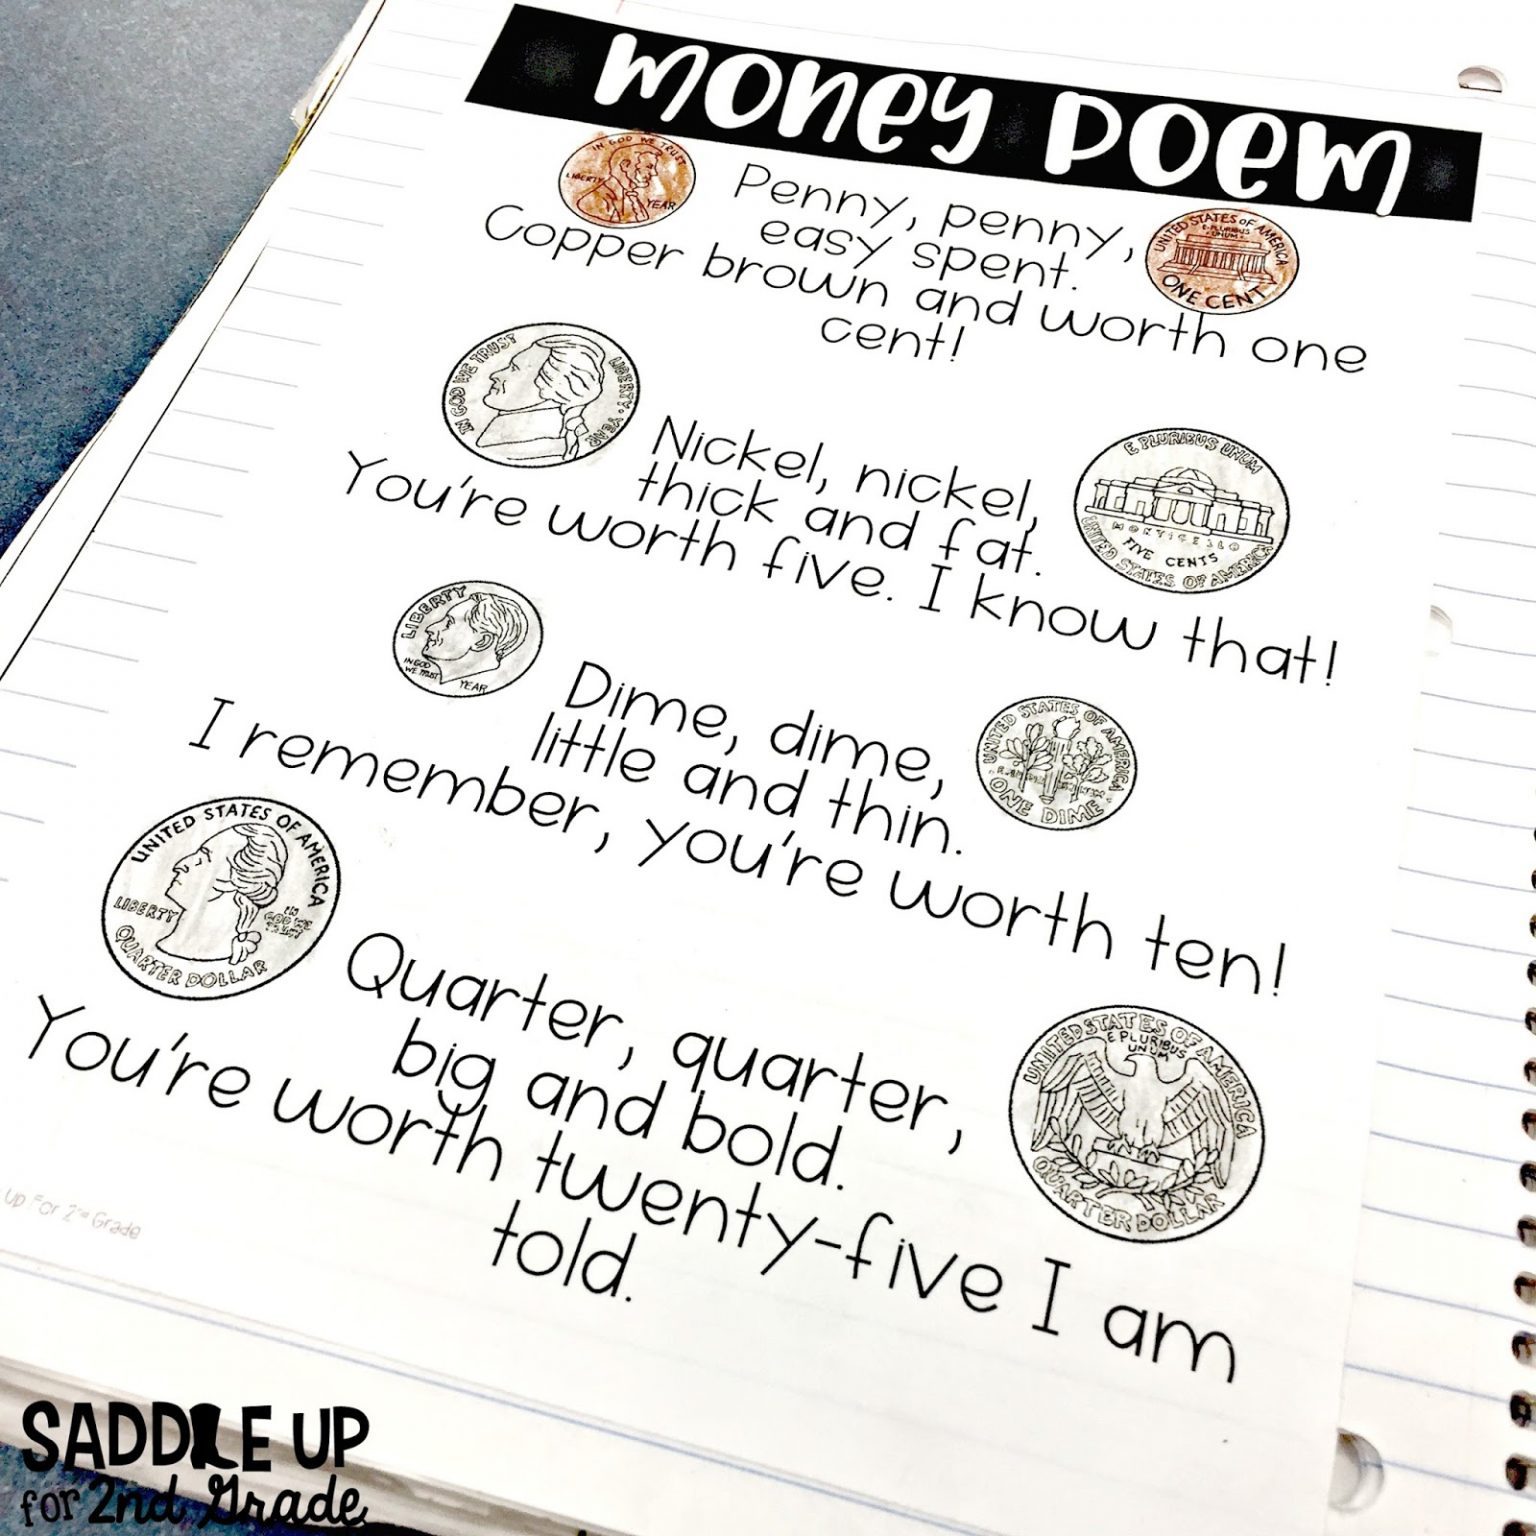 money poem
IN GOD WE TRUST
LIBERTY
YEAR
Penny, penny,
easy spent.
Copper brown and worth one
cent!
UNITED STATES OF AMERICA
E PLURIBUS
UNUM
ONE CENT
IN GOD WE TRUST
LIBERTY · YEAR
Nickel, nickel,
thick and fat.
You're worth five. I know that!
E PLURIBUS UNUM
MONTICELLO
FIVE CENTS
UNITED STATES OF AMERICA
LIBERTY
IN GOD
WE TRUST
YEAR
Dime, dime,
little and thin.
I remember, you're worth ten!
UNITED STATES OF AMERICA
ONE DIME
UNITED STATES OF AMERICA
LIBERTY
IN
GOD WE
TRUST
QUARTER DOLLAR
Quarter, quarter,
big and bold.
You're worth twenty-five I am
told.
UNITED STATES OF AMERICA
E PLURIBUS
UNUM
QUARTER DOLLAR
Up For 2nd Grade
SADDLE UP
for 2nd Grade